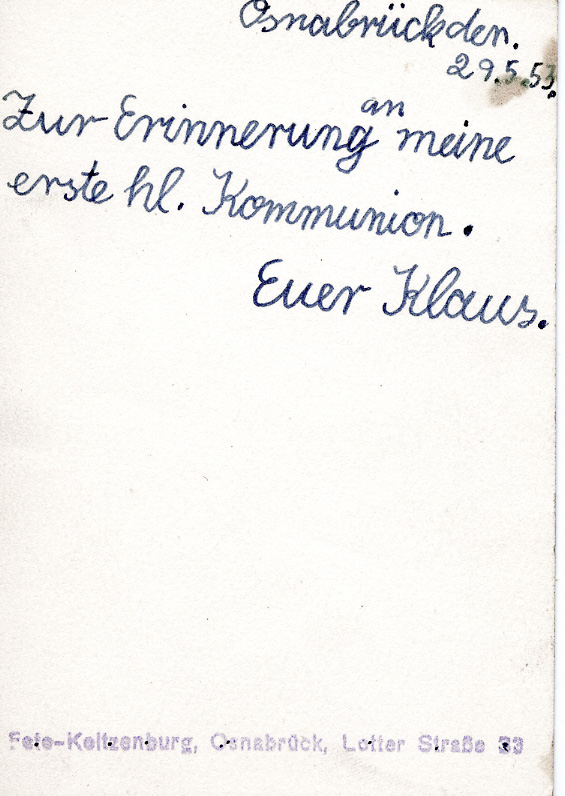 Osnabrück den.
29.5.53.
an
Zur Erinnerung meine
erste hl. Kommunion.
Euer Klaus.
Foto-Keitzenburg, Osnabrück, Lotter Straße 33